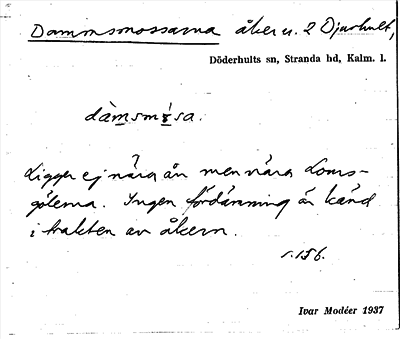 Dammsmossarna åker u. 2 Djurhult,
Döderhults sn, Stranda hd, Kalm. l.
dàmsmɔ́sa.
Ligger ej nära ån men nära Loms-
gölerna. Ingen fördämning är känd
i trakten av åkern.
s. 156.
Ivar Modéer 1937